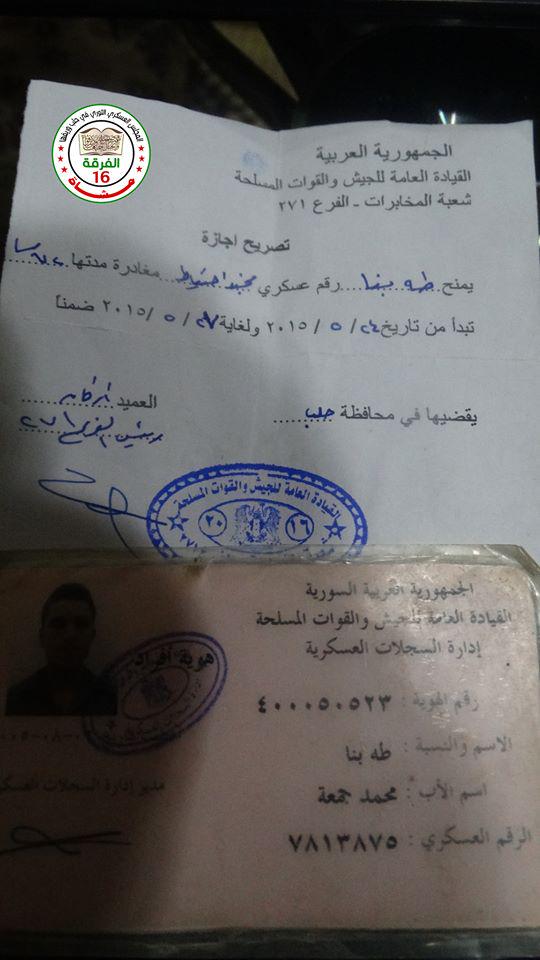 المجلس العسكري الثوري في حلب وريفها
الفرقة
16
مشاة
الجمهورية العربية
القيادة العامة للجيش والقوات المسلحة
شعبة المخابرات - الفرع ٢٧١
تصريح اجازة
يمنح طه بنا رقم عسكري مغادرة مدتها
تبدأ من تاريخ ٢٤ / ٥ / ٢٠١٥ ولغاية ٢٧ / ٥ / ٢٠١٥ ضمنا
يقضيها في محافظة حلب
العميد
رئيس الفرع ٢٧١
القيادة العامة للجيش والقوات المسلحة
٢٠ ١٦
الجمهورية العربية السورية
القيادة العامة للجيش والقوات المسلحة
إدارة السجلات العسكرية
هوية أفراد
رقم الهوية : ٤٠٠٠٥٠٥٢٣
الاسم والنسبة : طه بنا
اسم الأب : محمد جمعة
الرقم العسكري : ٧٨١٣٨٧٥
مدير إدارة السجلات